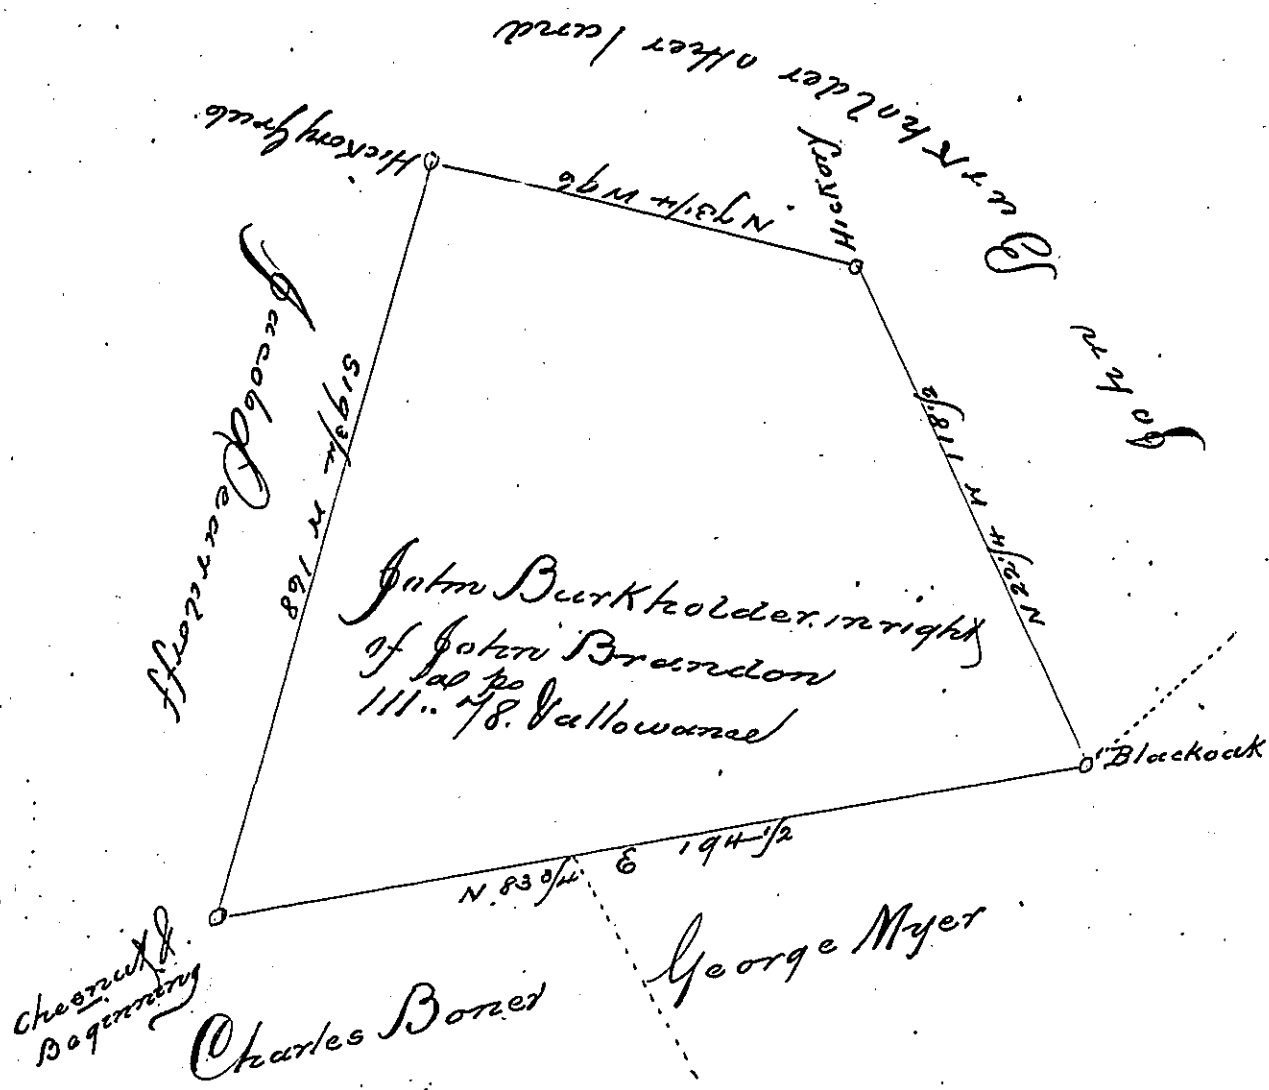 John Burkholder other land
Hickory Grub
N 73 1/4 W 96
Hickory
Jacob Dearrdorff
S 19 3/4 W 168
N 22 1/4 W 118 1/2
John Burkholder in right
of John Brandon
a ps
111.. 78. & allowance
Blackoak
N. 83 3/4 E 194 1/2
Chesnut &
Beginning
Charles Boner
George Myer